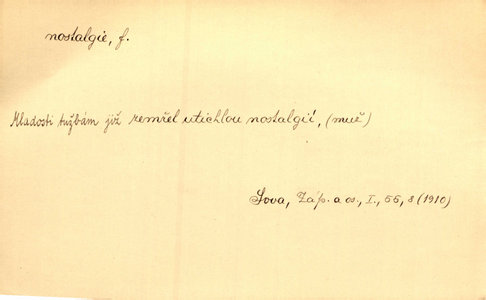 nostalgie, f.
Mladosti tužbám již zemřel utichlou nostalgií, (muž)
Sova, Záp. a os., I., 66, 8 (1910)